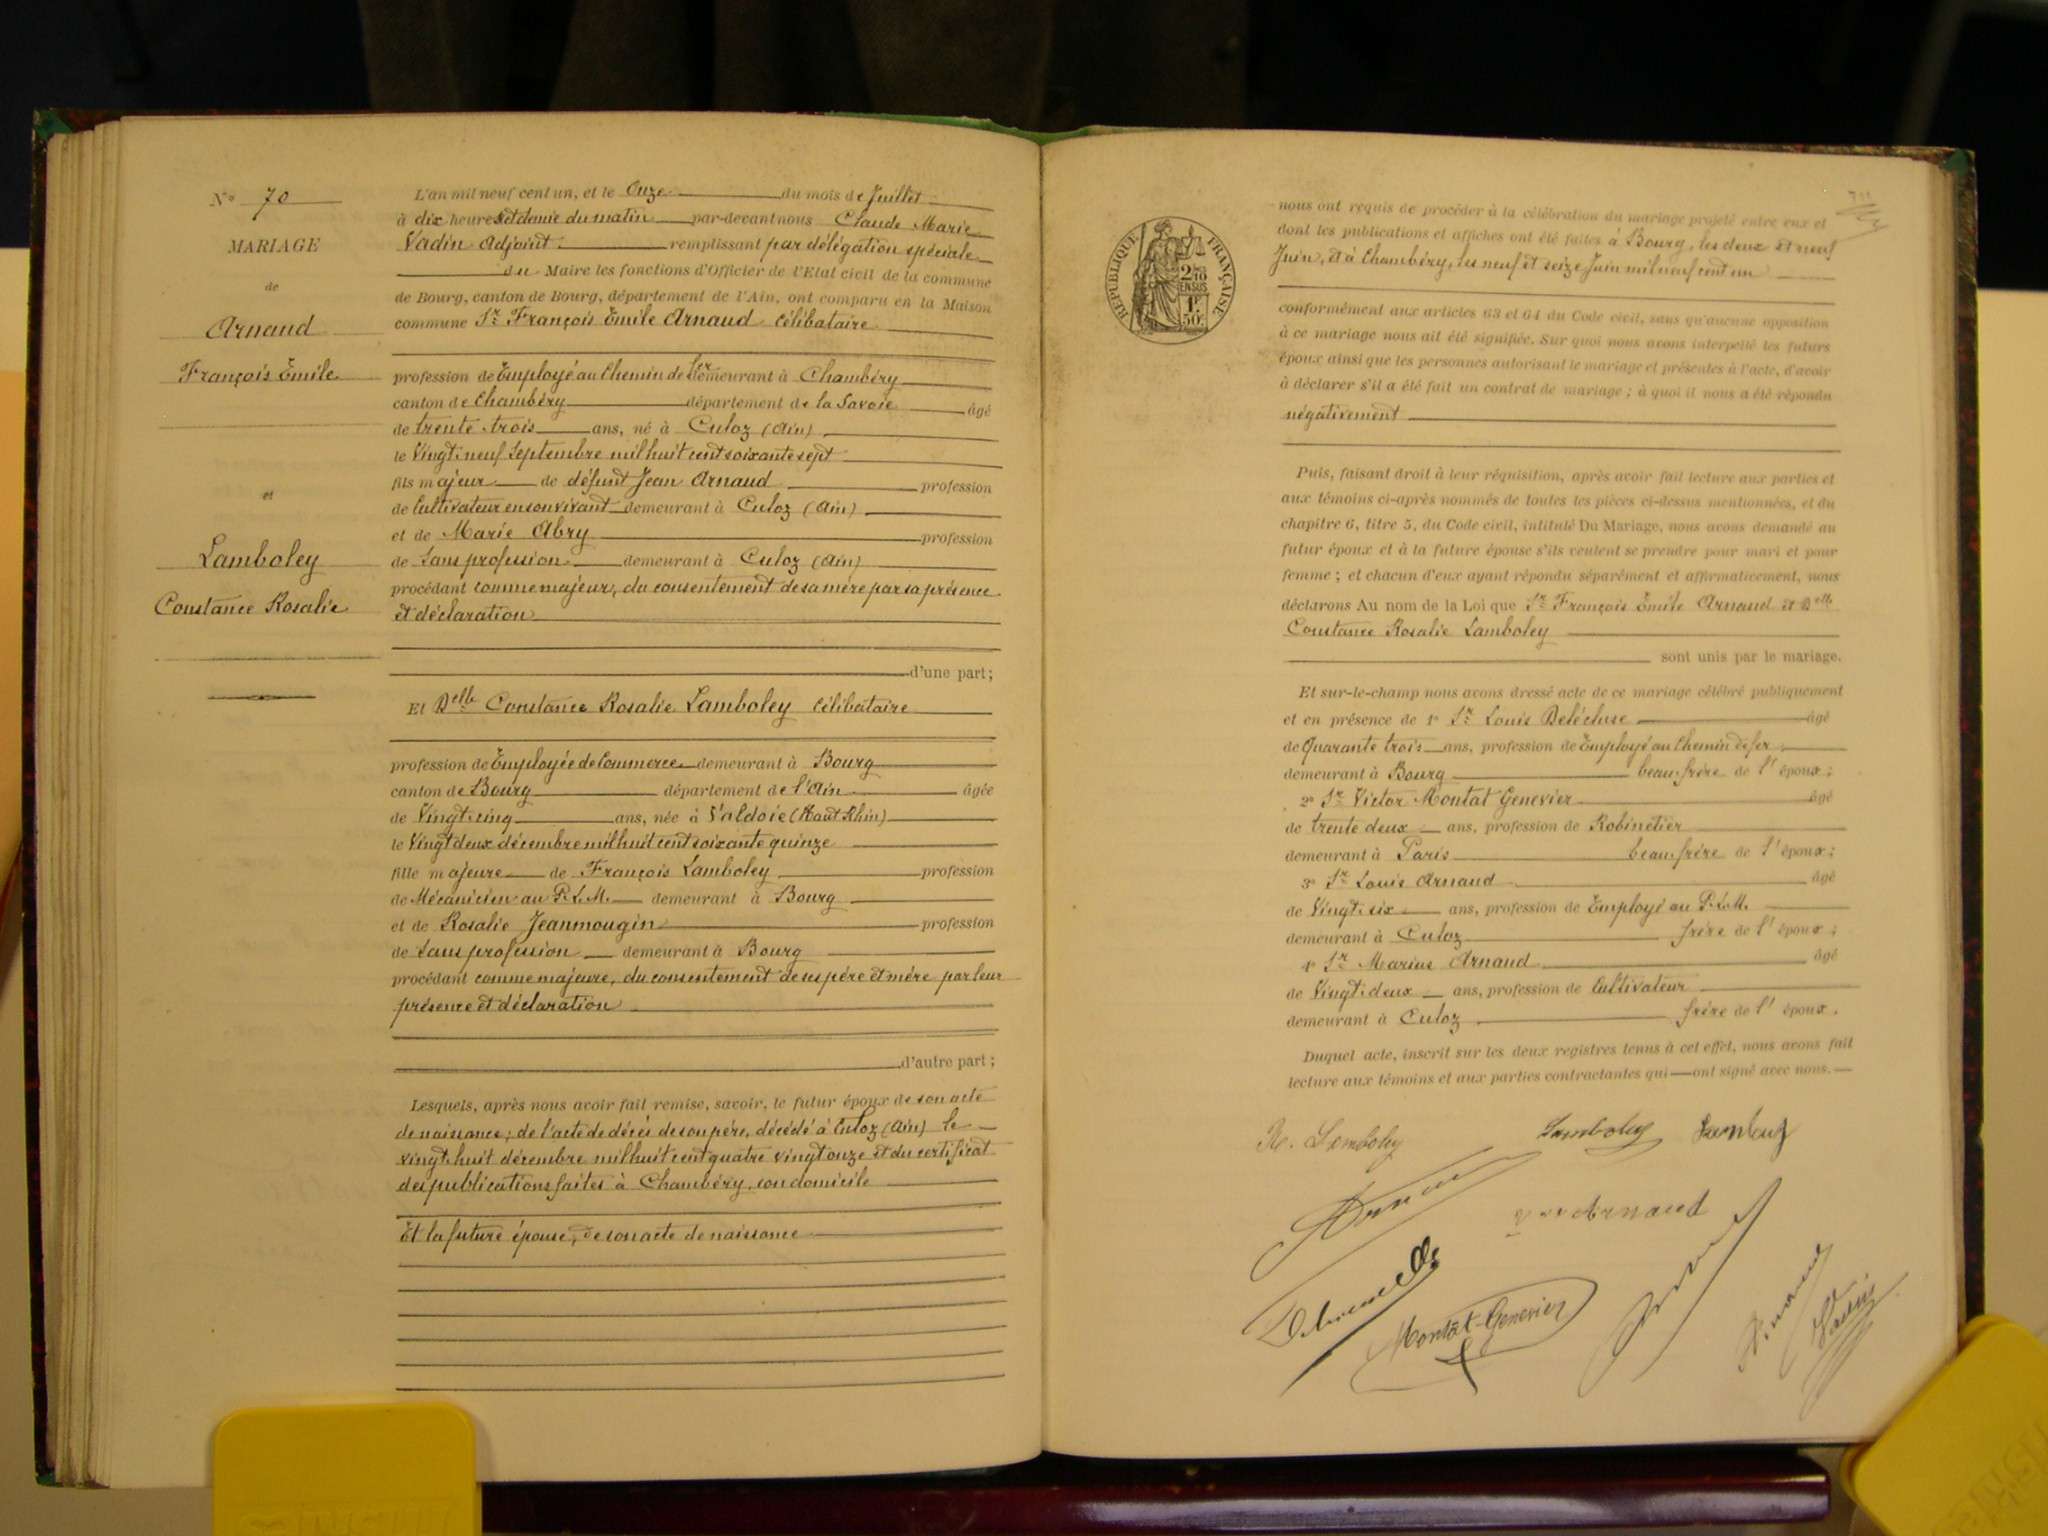 N° 70
MARIAGE
de
Arnaud
François Emile
et
Lamboley
Constance Rosalie
L'an mil neuf cent un, et le Onze du mois de Juillet
à dix heures et demie du matin par-devant nous Claude Marie
Vadin Adjoint remplissant par délégation spéciale
du Maire les fonctions d'Officier de l'Etat civil de la commune
de Bourg, canton de Bourg, département de l'Ain, ont comparu en la Maison
commune Sr François Emile Arnaud célibataire
profession de Employé au Chemin de fer demeurant à Chambéry
canton de Chambéry département de la Savoie âgé
de trente trois ans, né à Culoz (Ain)
le Vingt neuf Septembre mil huit cent soixante sept
fils majeur de défunt Jean Arnaud profession
de Cultivateur en son vivant demeurant à Culoz (Ain)
et de Marie Abry profession
de Sans profession demeurant à Culoz (Ain)
procédant comme majeur, du consentement de sa mère par sa présence
et déclaration
d'une part;
Et Delle Constance Rosalie Lamboley célibataire
profession de Employée de Commerce demeurant à Bourg
canton de Bourg département de l'Ain âgée
de Vingt cinq ans, née à Valdoie (Haut Rhin)
le Vingt deux décembre mil huit cent soixante quinze
fille majeure de François Lamboley profession
de Mécanicien au P.L.M. demeurant à Bourg
et de Rosalie Jeanmougin profession
de Sans profession demeurant à Bourg
procédant comme majeure, du consentement de ses père et mère par leur
présence et déclaration
d'autre part;
Lesquels, après nous avoir fait remise, savoir, le futur époux de son acte
de naissance; de l'acte de décès de son père, décédé à Culoz (Ain) le
vingt huit décembre mil huit cent quatre vingt onze et du certificat
des publications faites à Chambéry, son domicile
Et la future épouse, de son acte de naissance
RÉPUBLIQUE FRANÇAISE
2/10
EN SUS
1F
50c
nous ont requis de procéder à la célébration du mariage projeté entre eux et
dont les publications et affiches ont été faites à Bourg, les deux et neuf
Juin, et à Chambéry, les neuf et seize Juin mil neuf cent un
conformément aux articles 63 et 64 du Code civil, sans qu'aucune opposition
à ce mariage nous ait été signifiée. Sur quoi nous avons interpellé les futurs
époux ainsi que les personnes autorisant le mariage et présentes à l'acte, d'avoir
à déclarer s'il a été fait un contrat de mariage; à quoi il nous a été répondu
négativement
Puis, faisant droit à leur réquisition, après avoir fait lecture aux parties et
aux témoins ci-après nommés de toutes les pièces ci-dessus mentionnées, et du
chapitre 6, titre 5, du Code civil, intitulé Du Mariage, nous avons demandé au
futur époux et à la future épouse s'ils veulent se prendre pour mari et pour
femme; et chacun d'eux ayant répondu séparément et affirmativement, nous
déclarons Au nom de la Loi que Sr François Emile Arnaud et Delle
Constance Rosalie Lamboley
sont unis par le mariage.
Et sur-le-champ nous avons dressé acte de ce mariage célébré publiquement
et en présence de 1° Sr Louis Delécluse âgé
de Quarante trois ans, profession de Employé au Chemin de fer
demeurant à Bourg beau-frère de l'époux;
2° Sr Victor Montat Genevier âgé
de trente deux ans, profession de Robinetier
demeurant à Paris beau-frère de l'époux;
3° Sr Louis Arnaud âgé
de Vingt six ans, profession de Employé au P.L.M.
demeurant à Culoz frère de l'époux;
4° Sr Marius Arnaud âgé
de Vingt deux ans, profession de Cultivateur
demeurant à Culoz frère de l'époux.
Duquel acte, inscrit sur les deux registres tenus à cet effet, nous avons fait
lecture aux témoins et aux parties contractantes qui ont signé avec nous.
R. Lamboley Lamboley
Arnaud
Montat-Genevier
Vadin